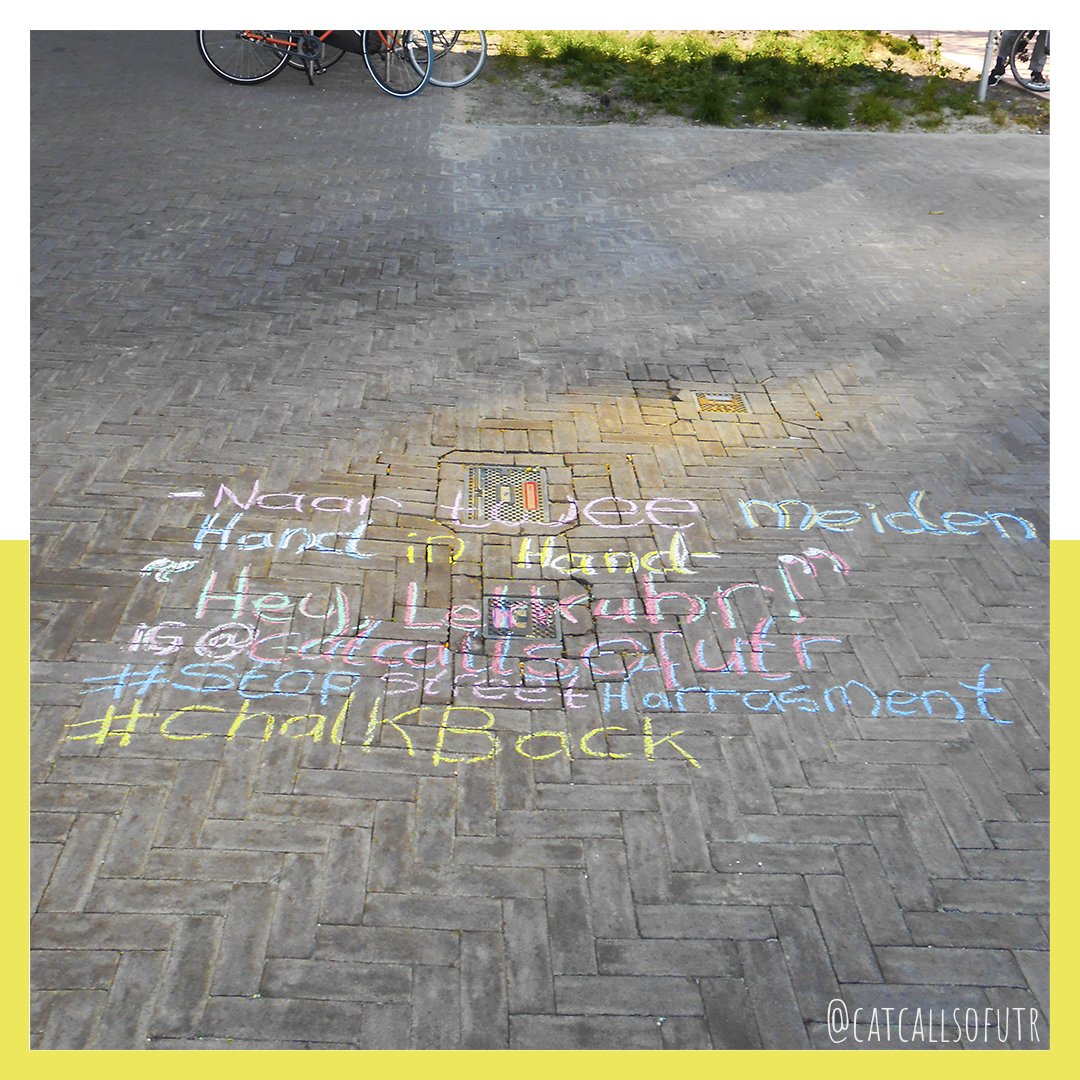 -Naar twee meiden
Hand in Hand-
"Hey, Lekkuhr!"
IG@catcallsofutr
#StopStreetHarrasment
#ChalkBack
@CATCALLSOFUTR